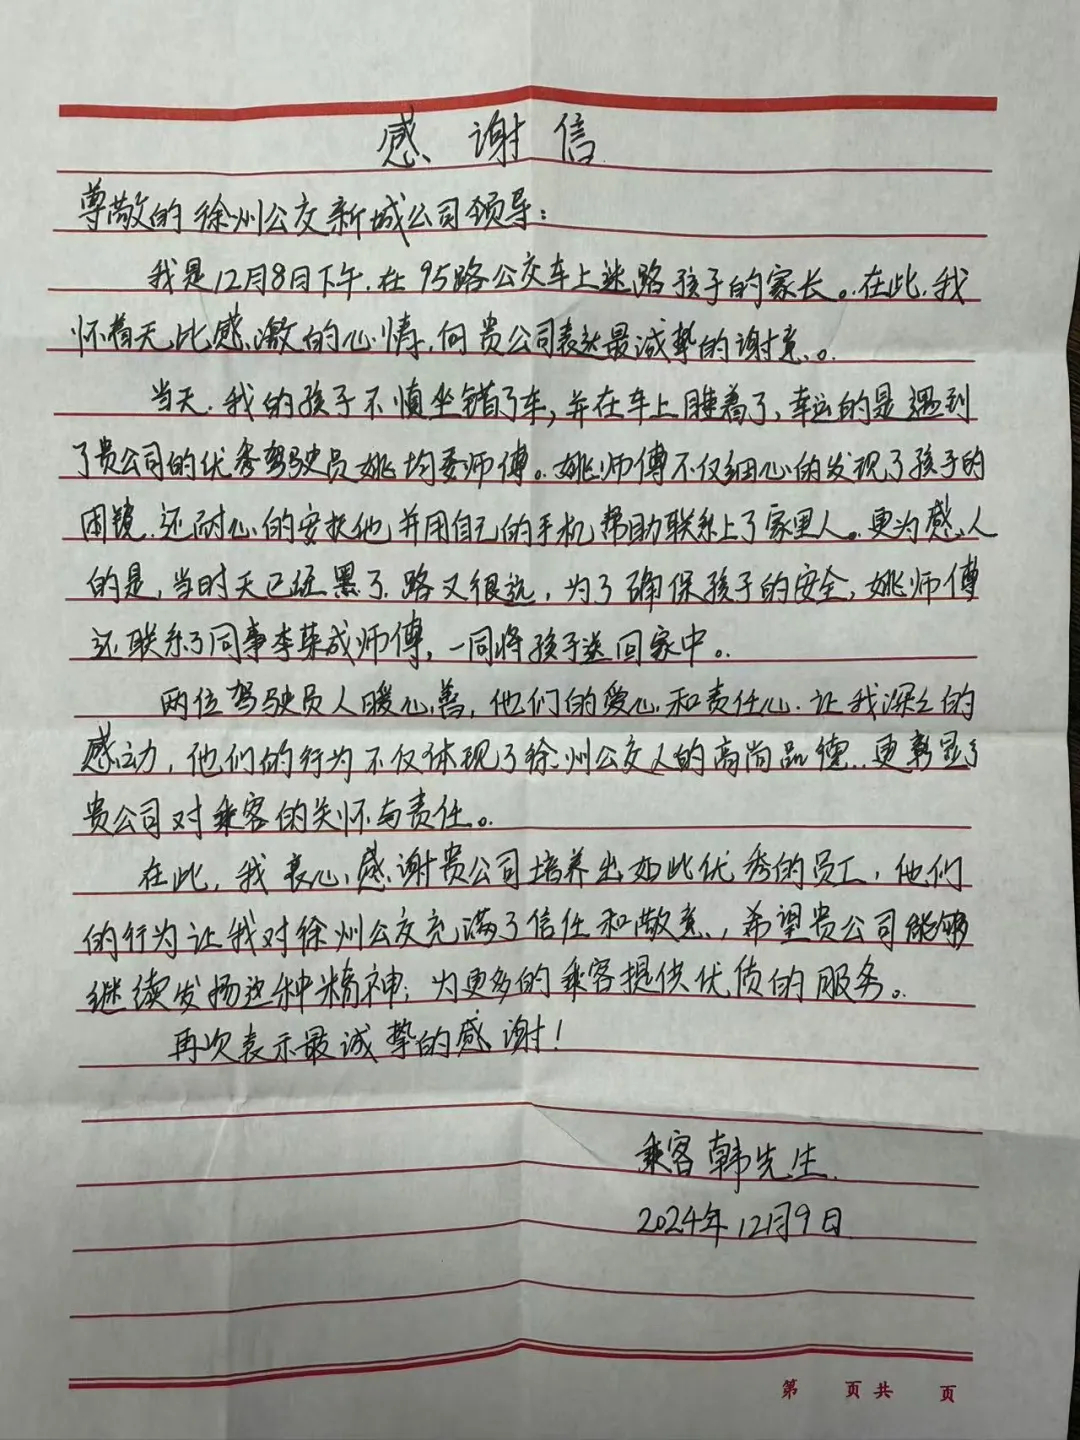 感谢信
尊敬的徐州公交新城公司领导：
我是12月8日下午.在95路公交车上迷路孩子的家长。在此,我
怀着无比感激的心情,向贵公司表达最诚挚的谢意。
当天.我的孩子不慎坐错了车,并在车上睡着了,幸运的是遇到
了贵公司的优秀驾驶员姚均委师傅。姚师傅不仅细心的发现了孩子的
困境.还耐心的安抚他并用自己的手机帮助联系上了家里人。更为感人
的是,当时天已经黑了.路又很远,为了确保孩子的安全,姚师傅
还联系了同事李荣成师傅,一同将孩子送回家中。
两位驾驶员人暖心善,他们的爱心和责任心.让我深深的
感动,他们的行为不仅体现了徐州公交人的高尚品德.更彰显了
贵公司对乘客的关怀与责任。
在此,我衷心感谢贵公司培养出如此优秀的员工,他们
的行为让我对徐州公交充满了信任和敬意,希望贵公司能够
继续发扬这种精神;为更多的乘客提供优质的服务。
再次表示最诚挚的感谢!
乘客韩先生
2024年12月9日
第 页共 页